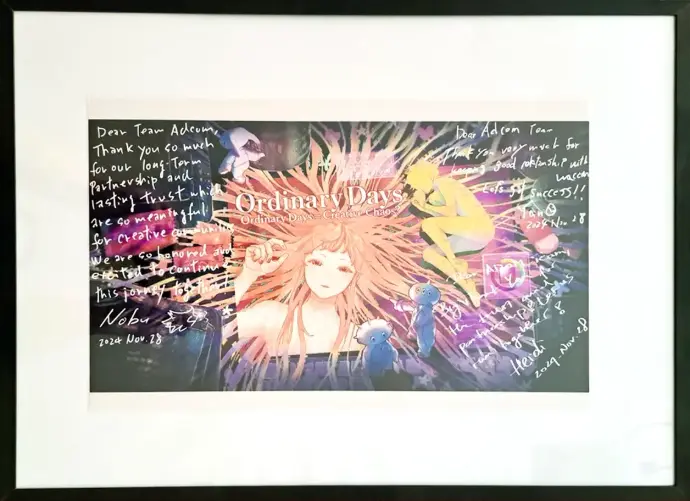 Dear Team Adcom,
Thank you so much
for our long-term
Partnership and
lasting trust which
are so meaningful
for creative communities
We are so honored and
excited to continue
this journey together!
Nobu
2024 Nov. 28
Ordinary Days
Ordinary Days - Creative Chaos?
Dear Adcom Team
Thank you very much for
keeping good relationship with
wacom
Let's go success!!
2024 Nov 28
Heidi
2024. Nov. 28